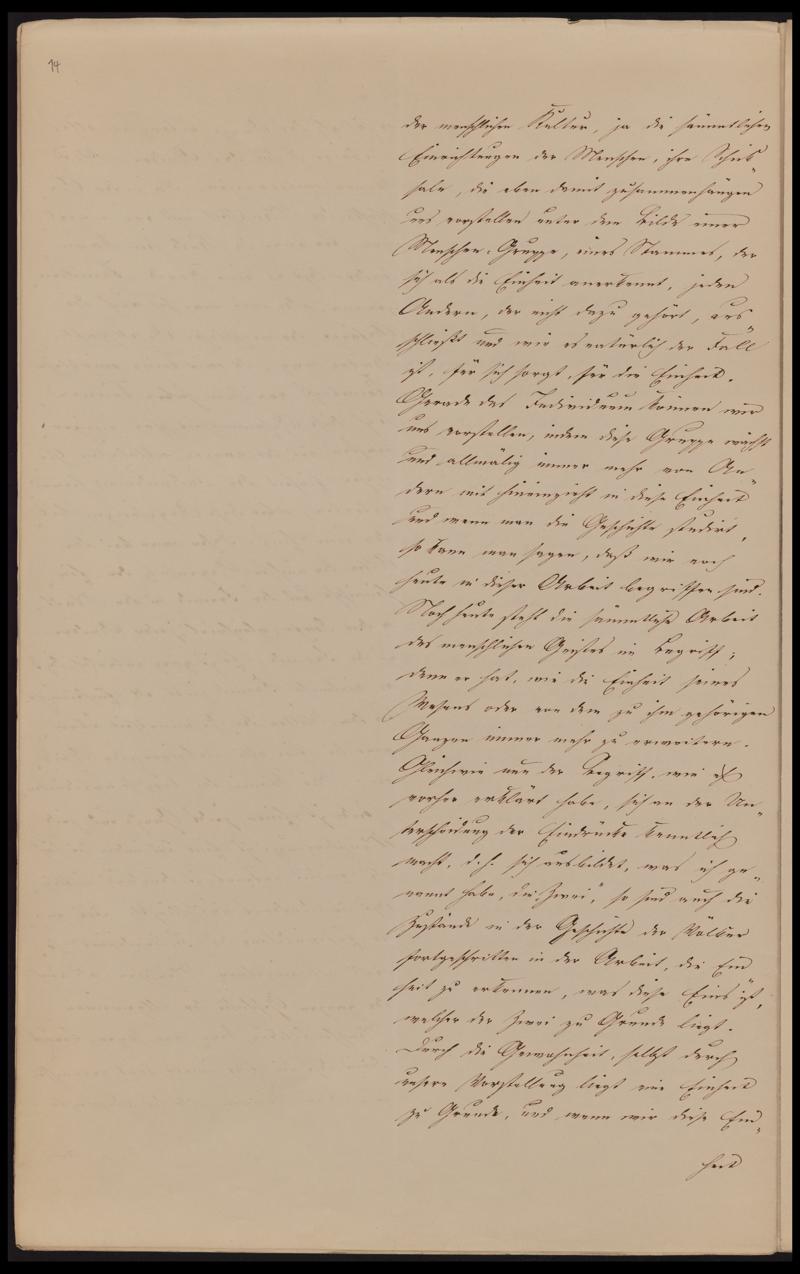 14
der menschlichen Kultur, ja die sämmtlichen
Einrichtungen der Menschen, ihre Schick„
sale, die eben damit zusammenhängen
uns vorstellen unter dem Bilde einer
Menschen-Gruppe, eines Stammes, der
sich als die Einheit anerkennt, jeden
Andern, der nicht dazu gehört, aus„
schließt und wie es natürlich der Fall
ist, für sich sorgt, für die Einheit.
Gerade das Individuum können wir
uns vorstellen, indem diese Gruppe wächst
und allmälig immer mehr von An„
dern mit hineinzieht in diese Einheit
und wenn man die Geschichte studirt,
so kann man sagen, daß wir noch
heute in dieser Arbeit begriffen sind.
Noch heute steht die sämmtliche Arbeit
des menschlichen Geistes im Begriff;
denn er hat, wie die Einheit seines
Wesens oder von dem zu ihm gehörigen
Ganzen immer mehr zu erweitern.
Gleichwie nun der Begriff, wie ich
vorher erklärt habe, sich an der Un„
terscheidung der Eindrücke kenntlich
macht, d.h. sich ausbildet, was ich ge„
nannt habe, die „Zwei“, so sind auch die
Zustände in der Geschichte der Völker
fortgeschritten in der Arbeit, die Ein„
heit zu erkennen, was diese Eins ist,
welcher der Zwei zu Grunde liegt.
Durch die Gewohnheit, selbst durch
unsere Vorstellung liegt eine Einheit
zu Grunde, und wenn wir diese Ein„
heit